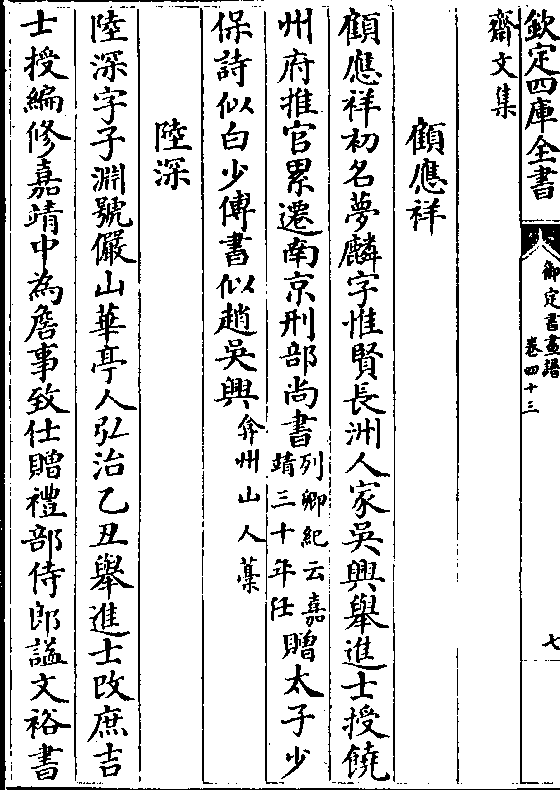 欽定四庫全書
御定書畫譜
卷四十三
七
齋文集
顧應祥
顧應祥初名夢麟字惟賢長洲人家吳興舉進士授饒
州府推官累遷南京刑部尚書列卿紀云嘉靖三十年任贈太子少
保詩似白少傅書似趙吳興弇州山人藁
陸深
陸深字子淵號儼山華亭人弘治乙丑舉進士改庶吉
士授編修嘉靖中為詹事致仕贈禮部侍郎諡文裕書